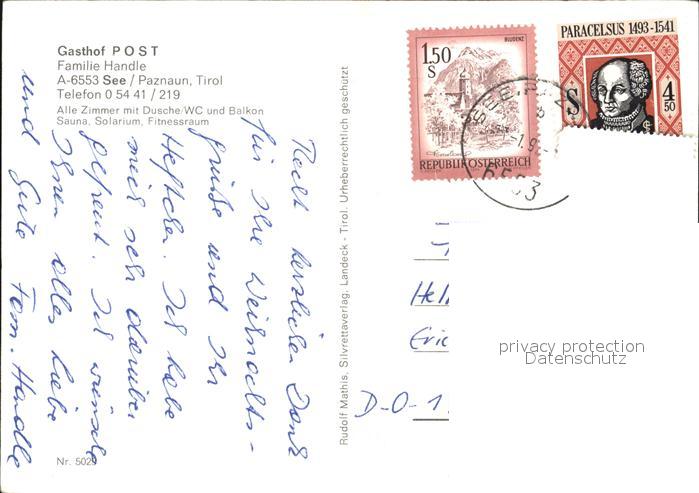 Gasthof POST
Familie Handle
A-6553 See / Paznaun, Tirol
Telefon 0 54 41 / 219
Alle Zimmer mit Dusche/WC und Balkon
Sauna, Solarium, Fitnessraum
Recht herzlichen Dank
für Ihre Weihnachts-
grüße und Ihr
Heftchen. Ich habe
mich sehr darüber
gefreut. Ich wünsche
Ihnen alles Liebe
und Gute Fam. Handle
Nr. 5029
Rudolf Mathis, Silvrettaverlag, Landeck - Tirol. Urheberrechtlich geschützt
1.50
S
BLUDENZ
REPUBLIK ÖSTERREICH
PARACELSUS 1493-1541
S
4
50
6553
Hel
Eric
D-O-1
privacy protection
Datenschutz